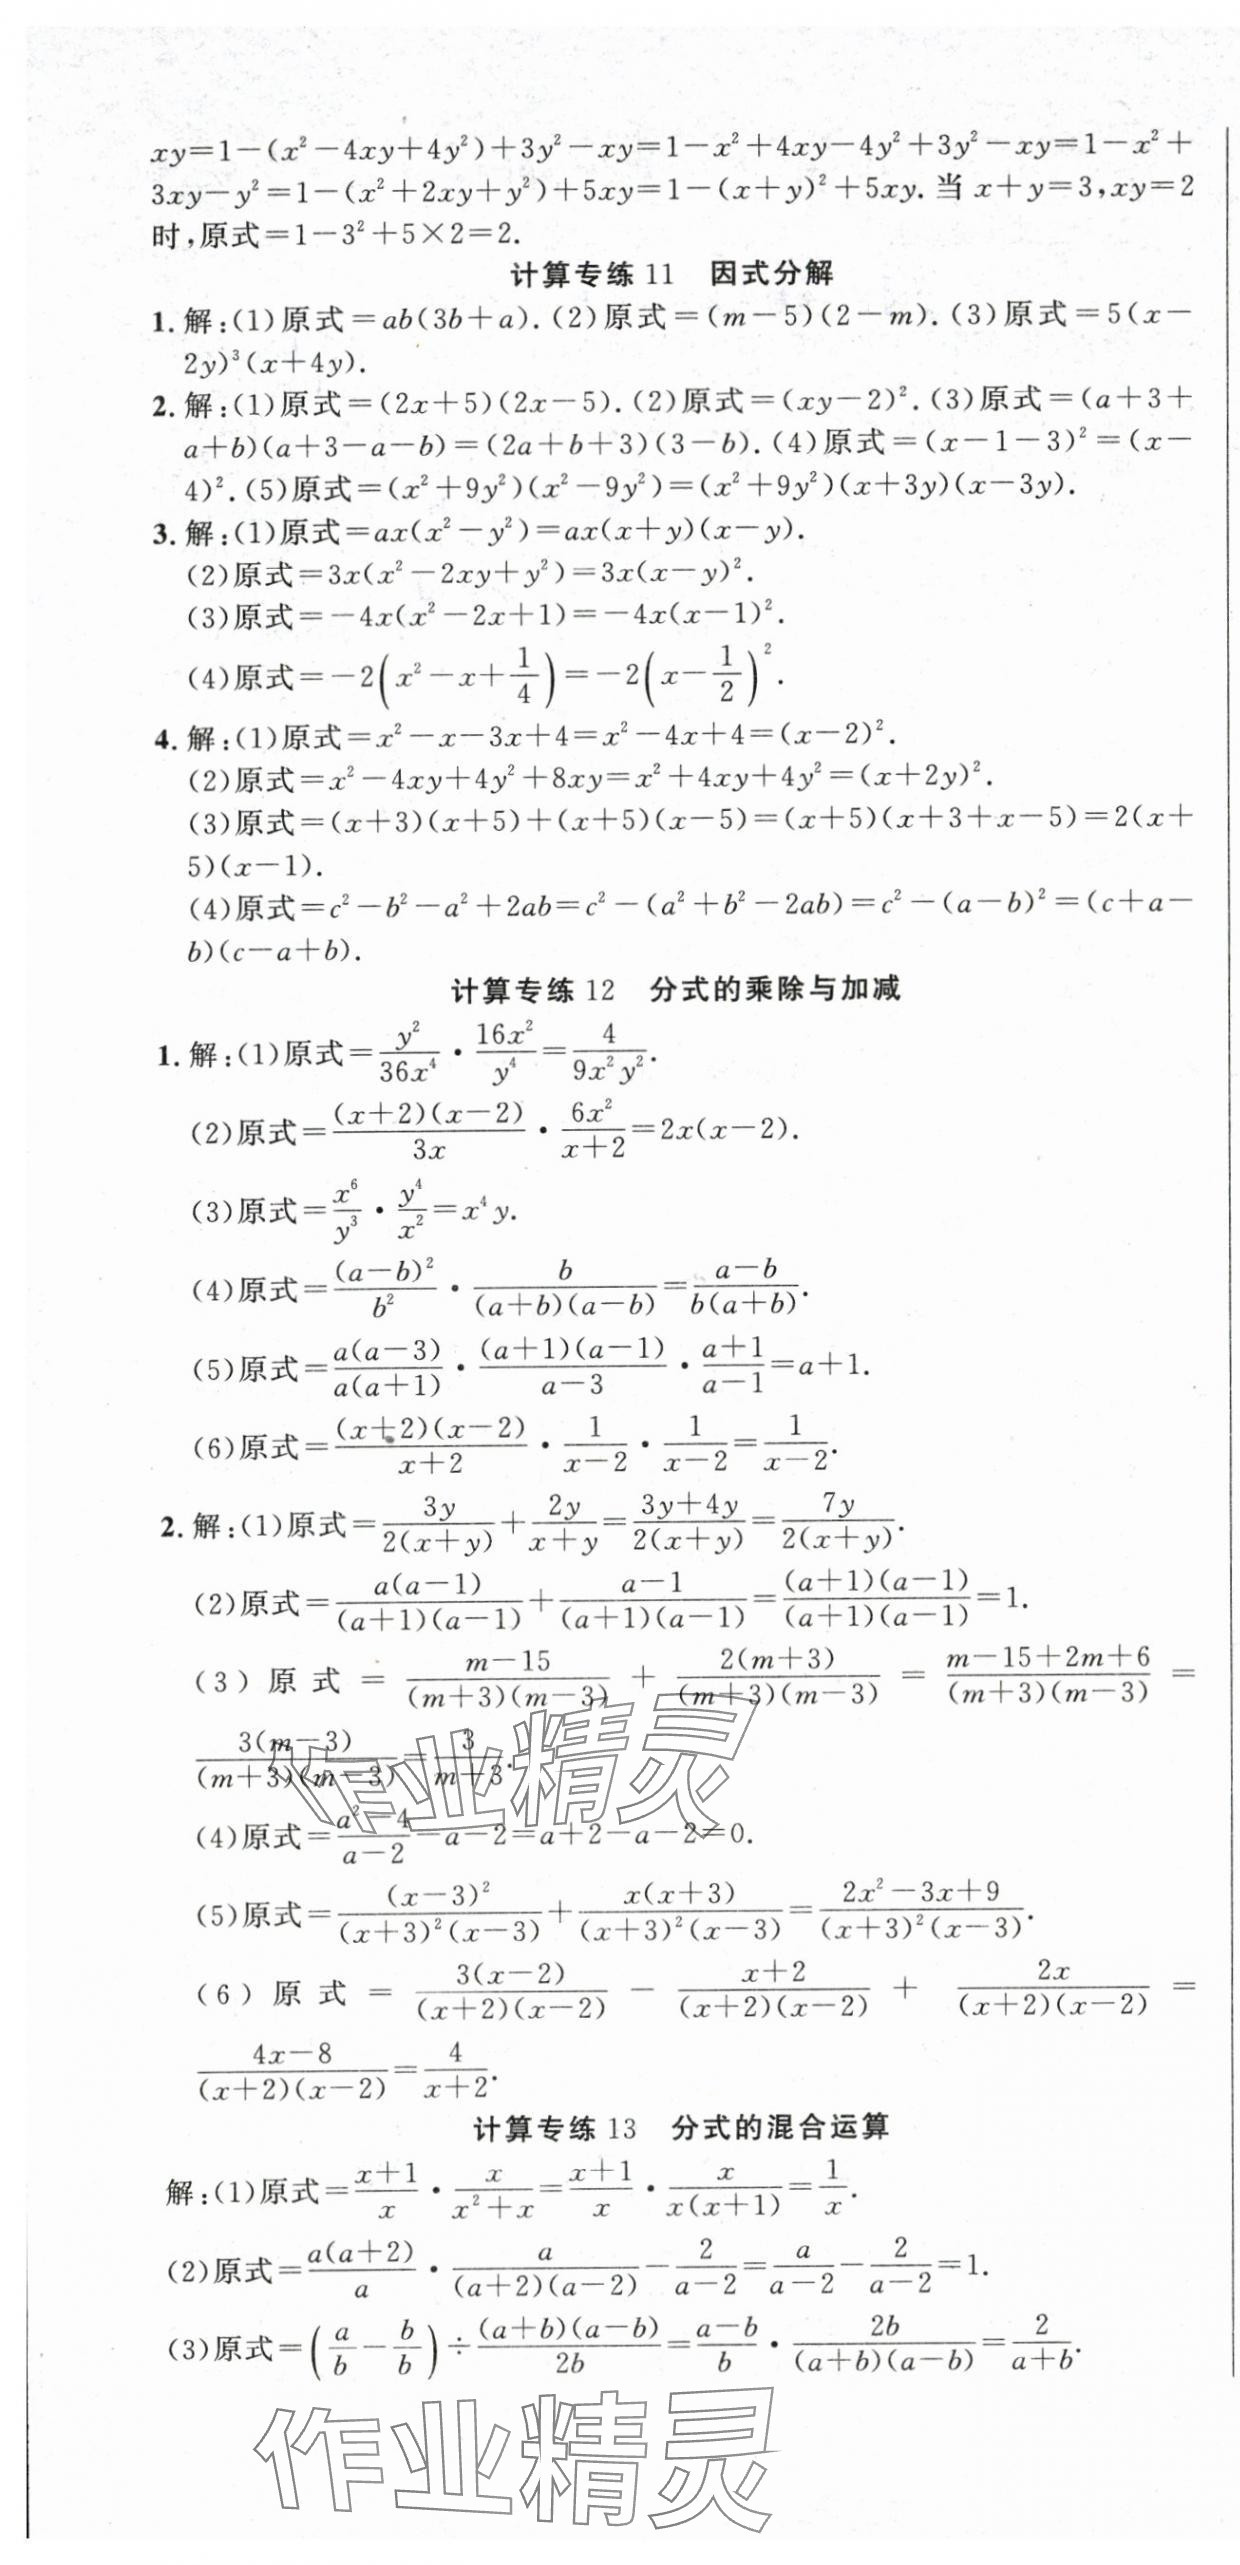 xy=1-(x²-4xy+4y²)+3y²-xy=1-x²+4xy-4y²+3y²-xy=1-x²+
3xy-y²=1-(x²+2xy+y²)+5xy=1-(x+y)²+5xy.当x+y=3,xy=2
时,原式=1-3²+5×2=2.
计算专练11 因式分解
1.解:(1)原式=ab(3b+a).(2)原式=(m-5)(2-m).(3)原式=5(x-
2y)³(x+4y).
2.解:(1)原式=(2x+5)(2x-5).(2)原式=(xy-2)².(3)原式=(a+3+
a+b)(a+3-a-b)=(2a+b+3)(3-b).(4)原式=(x-1-3)²=(x-
4)².(5)原式=(x²+9y²)(x²-9y²)=(x²+9y²)(x+3y)(x-3y).
3.解:(1)原式=ax(x²-y²)=ax(x+y)(x-y).
(2)原式=3x(x²-2xy+y²)=3x(x-y)².
(3)原式=-4x(x²-2x+1)=-4x(x-1)².
(4)原式=-2(x²-x+1/4)=-2(x-1/2)².
4.解:(1)原式=x²-x-3x+4=x²-4x+4=(x-2)².
(2)原式=x²-4xy+4y²+8xy=x²+4xy+4y²=(x+2y)².
(3)原式=(x+3)(x+5)+(x+5)(x-5)=(x+5)(x+3+x-5)=2(x+
5)(x-1).
(4)原式=c²-b²-a²+2ab=c²-(a²+b²-2ab)=c²-(a-b)²=(c+a-
b)(c-a+b).
计算专练12 分式的乘除与加减
1.解:(1)原式=y²/36x⁴·16x²/y⁴=4/9x²y².
(2)原式=(x+2)(x-2)/3x·6x²/x+2=2x(x-2).
(3)原式=x⁶/y³·y⁴/x²=x⁴y.
(4)原式=(a-b)²/b²·b/(a+b)(a-b)=a-b/b(a+b).
(5)原式=a(a-3)/a(a+1)·(a+1)(a-1)/a-3·a+1/a-1=a+1.
(6)原式=(x+2)(x-2)/x+2·1/x-2·1/x-2=1/x-2.
2.解:(1)原式=3y/2(x+y)+2y/x+y=3y+4y/2(x+y)=7y/2(x+y).
(2)原式=a(a-1)/(a+1)(a-1)+a-1/(a+1)(a-1)=(a+1)(a-1)/(a+1)(a-1)=1.
(3)原式=m-15/(m+3)(m-3)+2(m+3)/(m+3)(m-3)=m-15+2m+6/(m+3)(m-3)=
3(m-3)/(m+3)(m-3)=3/m+3.
(4)原式=a²-4/a-2-a-2=a+2-a-2=0.
(5)原式=(x-3)²/(x+3)²(x-3)+x(x+3)/(x+3)²(x-3)=2x²-3x+9/(x+3)²(x-3).
(6)原式=3(x-2)/(x+2)(x-2)-x+2/(x+2)(x-2)+2x/(x+2)(x-2)=
4x-8/(x+2)(x-2)=4/x+2.
计算专练13 分式的混合运算
解:(1)原式=x+1/x·x/x²+x=x+1/x·x/x(x+1)=1/x.
(2)原式=a(a+2)/a·a/(a+2)(a-2)-2/a-2=a/a-2-2/a-2=1.
(3)原式=(a/b-b/b)÷(a+b)(a-b)/2b=a-b/b·2b/(a+b)(a-b)=2/a+b.
作业精灵
作业精灵